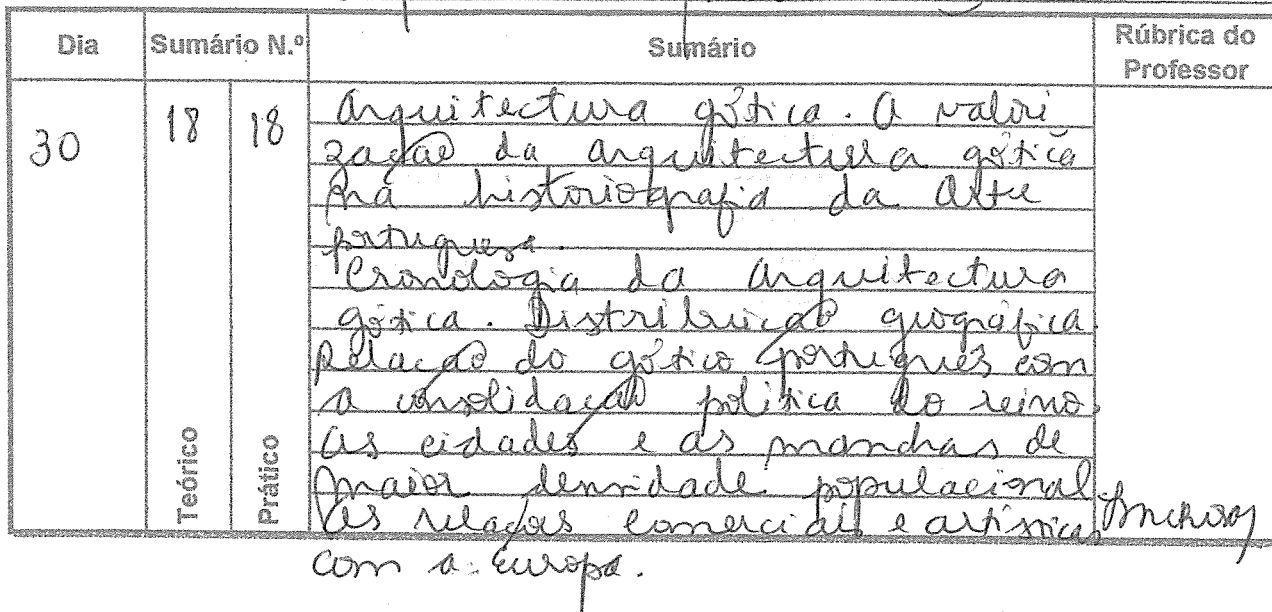 Dia Sumário N.º Sumário Rúbrica do Professor
30 18 18
Arquitectura gótica. A valori
zação da arquitectura gótica
na historiografia da Arte
portuguesa.
Cronologia da arquitectura
gótica. Distribuição geográfica.
Relação do gótico português com
a consolidação política do reino.
As cidades e as manchas de
maior densidade populacional.
As relações comerciais e artísticas
com a Europa.
Teórico
Prático